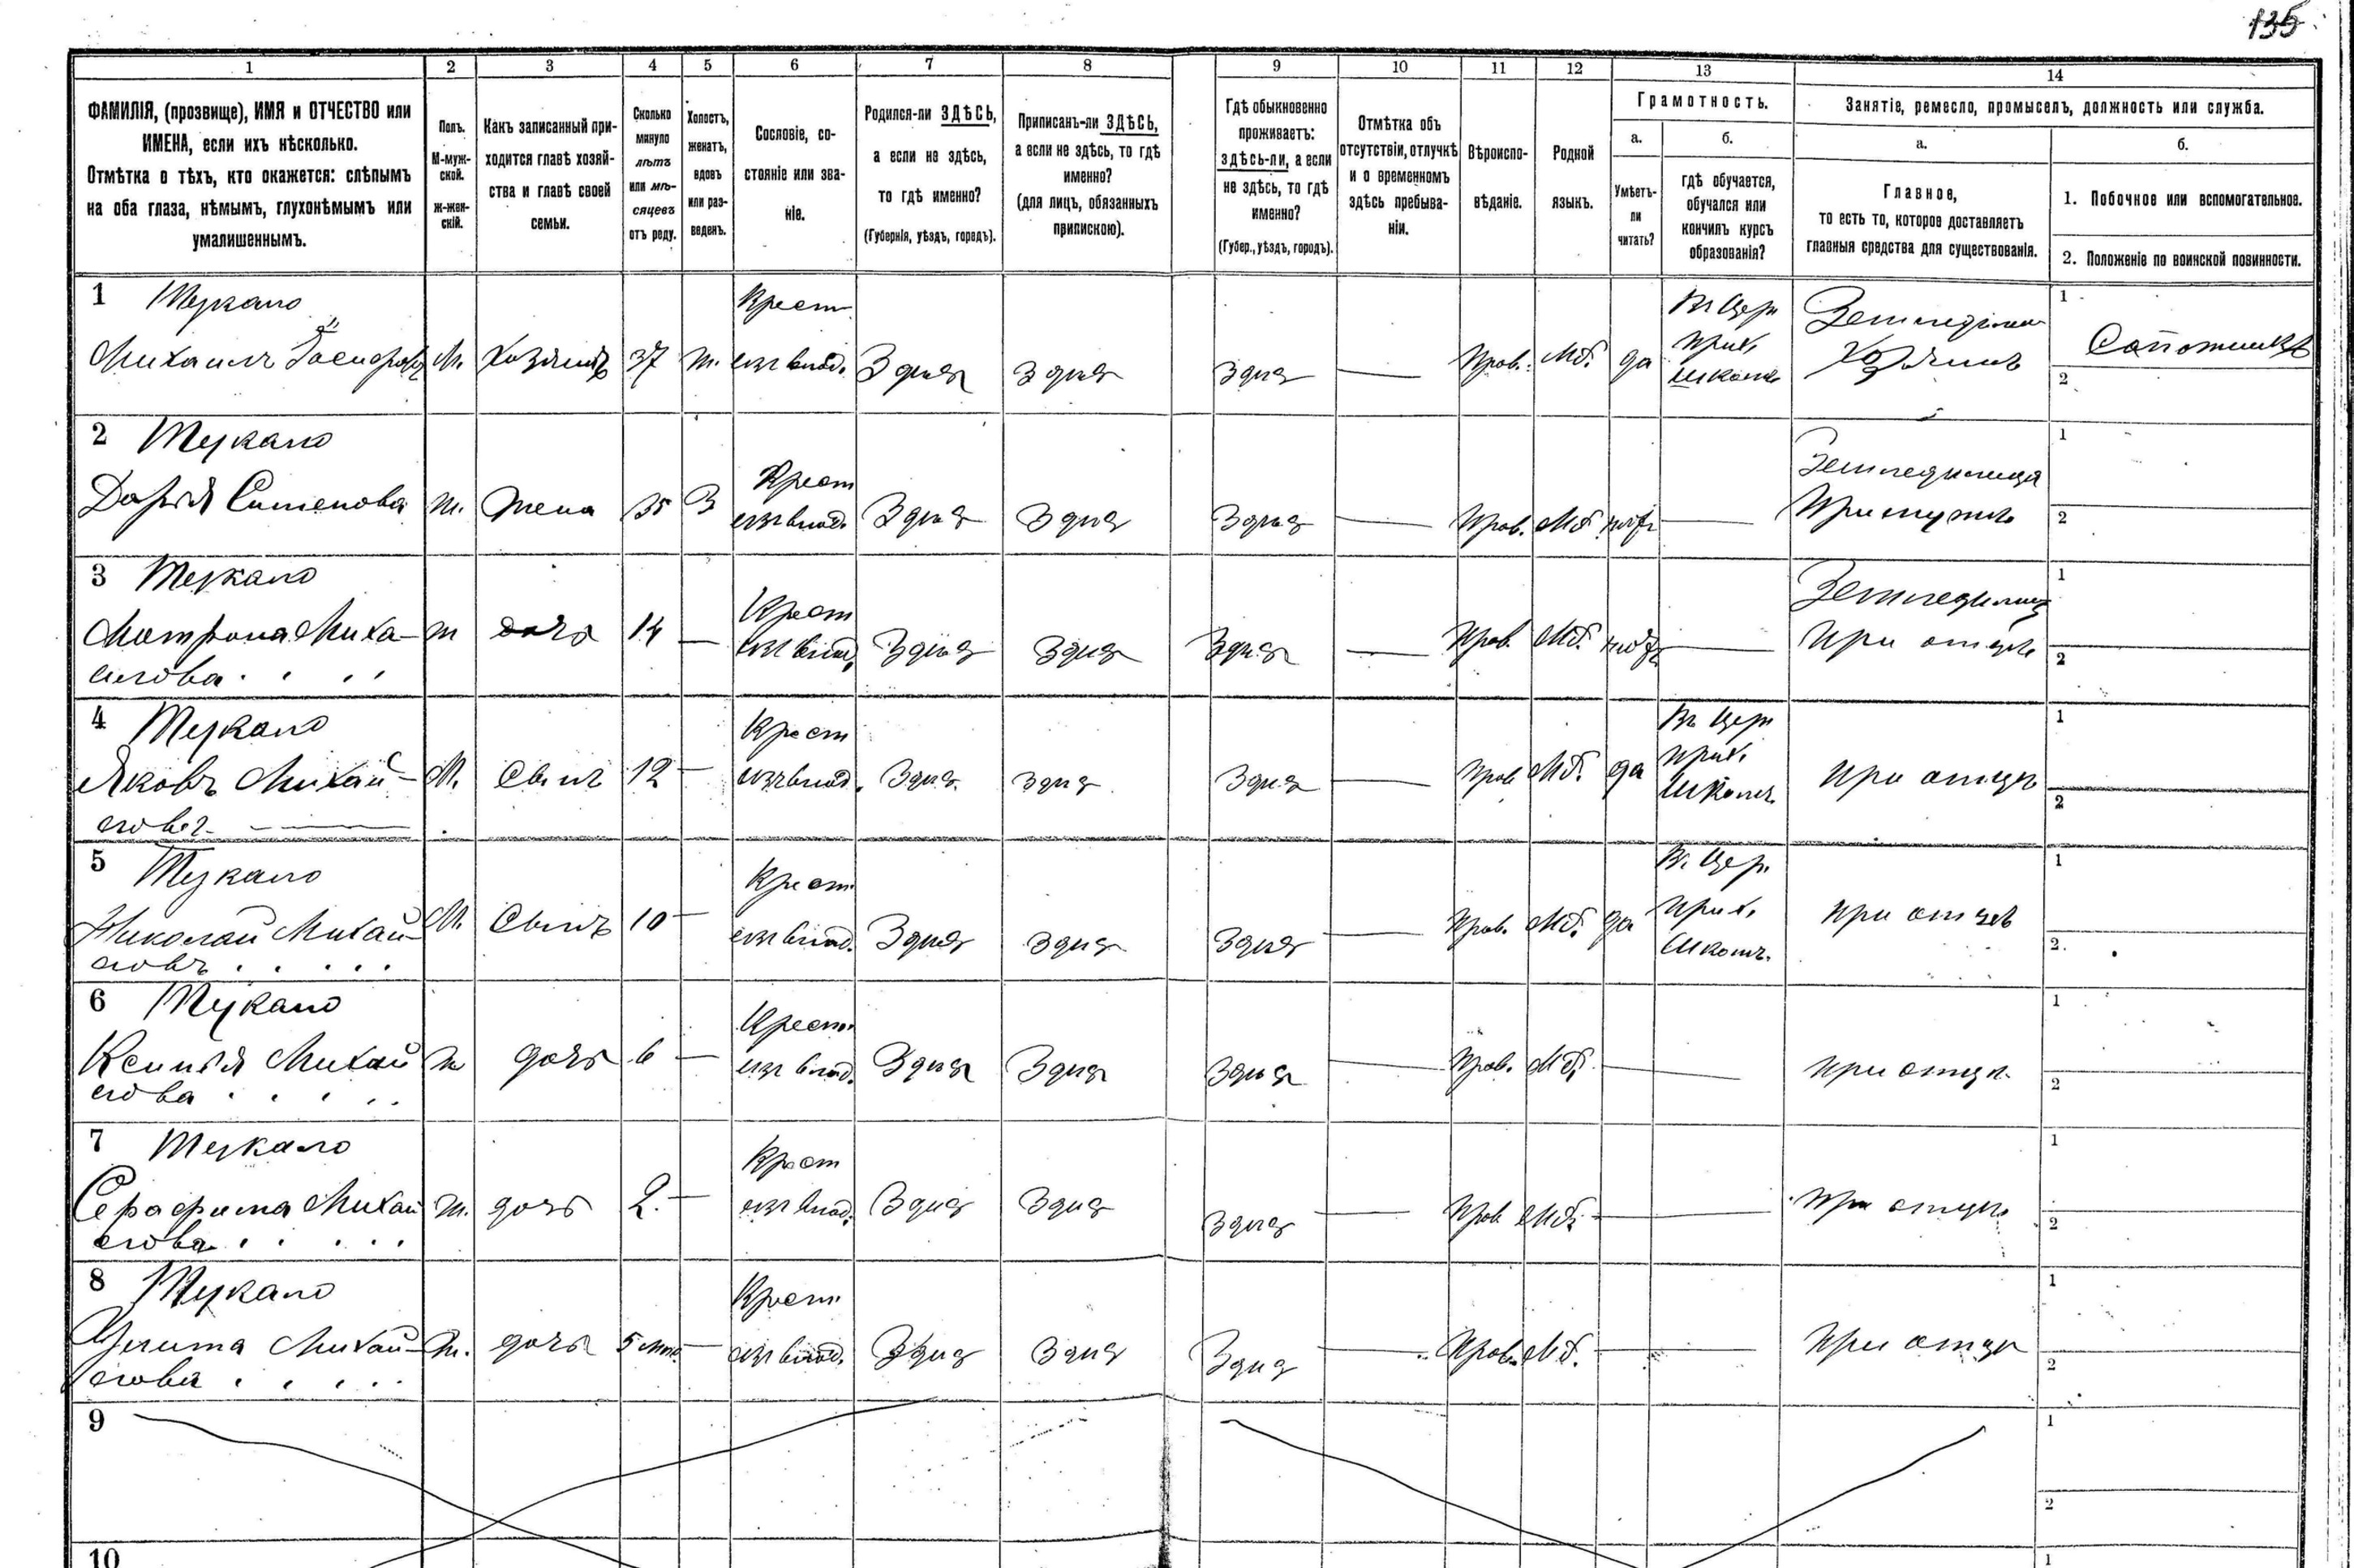 135
1 2 3 4 5 6 7 8 9 10 11 12 13 14
ФАМИЛІЯ, (прозвище), ИМЯ и ОТЧЕСТВО или
ИМЕНА, если ихъ нѣсколько.
Отмѣтка о тѣхъ, кто окажется: слѣпымъ
на оба глаза, нѣмымъ, глухонѣмымъ или
умалишеннымъ.
Полъ.
М-муж-
ской.
Ж-жен-
скій.
Какъ записанный при-
ходится главѣ хозяй-
ства и главѣ своей
семьи.
Сколько
минуло
лѣтъ
или мѣ-
сяцевъ
отъ роду.
Холостъ,
женатъ,
вдовъ
или раз-
веденъ.
Сословіе, со-
стояніе или зва-
ніе.
Родился-ли ЗДѢСЬ,
а если не здѣсь,
то гдѣ именно?
(Губернія, уѣздъ, городъ).
Приписанъ-ли ЗДѢСЬ,
а если не здѣсь, то гдѣ
именно?
(для лицъ, обязанныхъ
припискою).
Гдѣ обыкновенно
проживаетъ:
здѣсь-ли, а если
не здѣсь, то гдѣ
именно?
(Губер., уѣздъ, городъ).
Отмѣтка объ
отсутствіи, отлучкѣ
и о временномъ
здѣсь пребыва-
ніи.
Вѣроиспо-
вѣданіе.
Родной
языкъ.
Грамотность.
а.
Умѣетъ-
ли
читать?
б.
гдѣ обучается,
обучался или
кончилъ курсъ
образованія?
Занятіе, ремесло, промыселъ, должность или служба.
а.
Главное,
то есть то, которое доставляетъ
главныя средства для существованія.
б.
1. Побочное или вспомогательное.
2. Положеніе по воинской повинности.
1
Михаилъ
М. Хозяинъ 37 ж. Крест. изъ влад. Здѣсь Здѣсь Здѣсь — Прав. Мб. да
Въ Церк
прих.
школѣ
Хозяинъ
1 Сапожникъ
2
2
Дарья Семенова
ж. Жена 35 З Крест изъ влад. Здѣсь Здѣсь Здѣсь — Прав. Мб нѣтъ —
При мужѣ
1
2
3
Матрона Миха-
илова
ж дочь 14 — Крест изъ влад. Здѣсь Здѣсь Здѣсь — Прав. Мб. нѣтъ —
При отцѣ
1
2
4
Яковъ Михай-
ловъ
М. Сынъ 12 — Крест изъ влад. Здѣсь Здѣсь Здѣсь — Прав Мб. да
Въ Церк
прих.
школѣ
При отцѣ
1
2
5
Николай Михай-
ловъ
М. Сынъ 10 — Крест изъ влад. Здѣсь Здѣсь Здѣсь — Прав. Мб. да
Въ Церк.
прих.
школѣ.
При отцѣ
1
2.
6
Ксенія Михай
лова
ж дочь 6 — Крест. изъ влад. Здѣсь Здѣсь Здѣсь — Прав. Мб. —
При отцѣ
1
2
7
Серафима Михай
лова
ж. дочь 2. — Крест изъ влад. Здѣсь Здѣсь Здѣсь — Прав Мб. —
При отцѣ
1
2
8
Михай-
лова
ж. дочь 5 — Крест. изъ влад. Здѣсь Здѣсь Здѣсь — Прав. Мб. —
При отцѣ
1
2
9
1
2
10
1